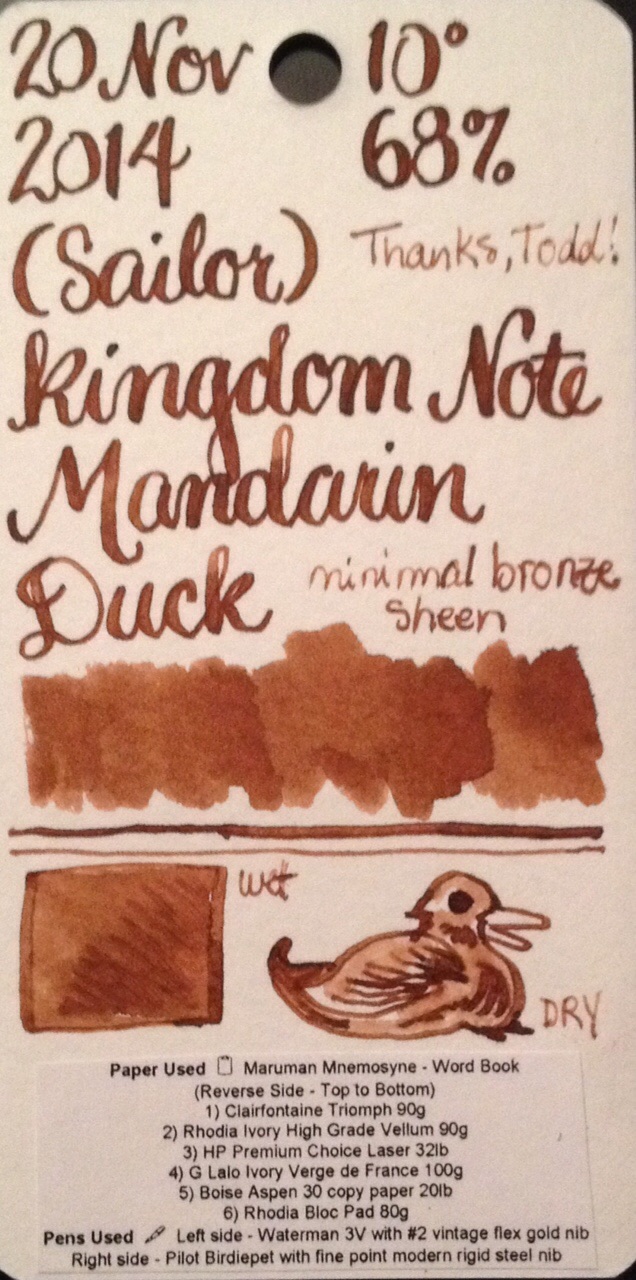 20 Nov 10°
2014 68%
(Sailor) Thanks, Todd!
Kingdom Note
Mandarin
Duck minimal bronze
sheen
wet
DRY
Paper Used 📋 Maruman Mnemosyne - Word Book
(Reverse Side - Top to Bottom)
1) Clairfontaine Triomph 90g
2) Rhodia Ivory High Grade Vellum 90g
3) HP Premium Choice Laser 32lb
4) G Lalo Ivory Verge de France 100g
5) Boise Aspen 30 copy paper 20lb
6) Rhodia Bloc Pad 80g
Pens Used 🖋 Left side - Waterman 3V with #2 vintage flex gold nib
Right side - Pilot Birdiepet with fine point modern rigid steel nib